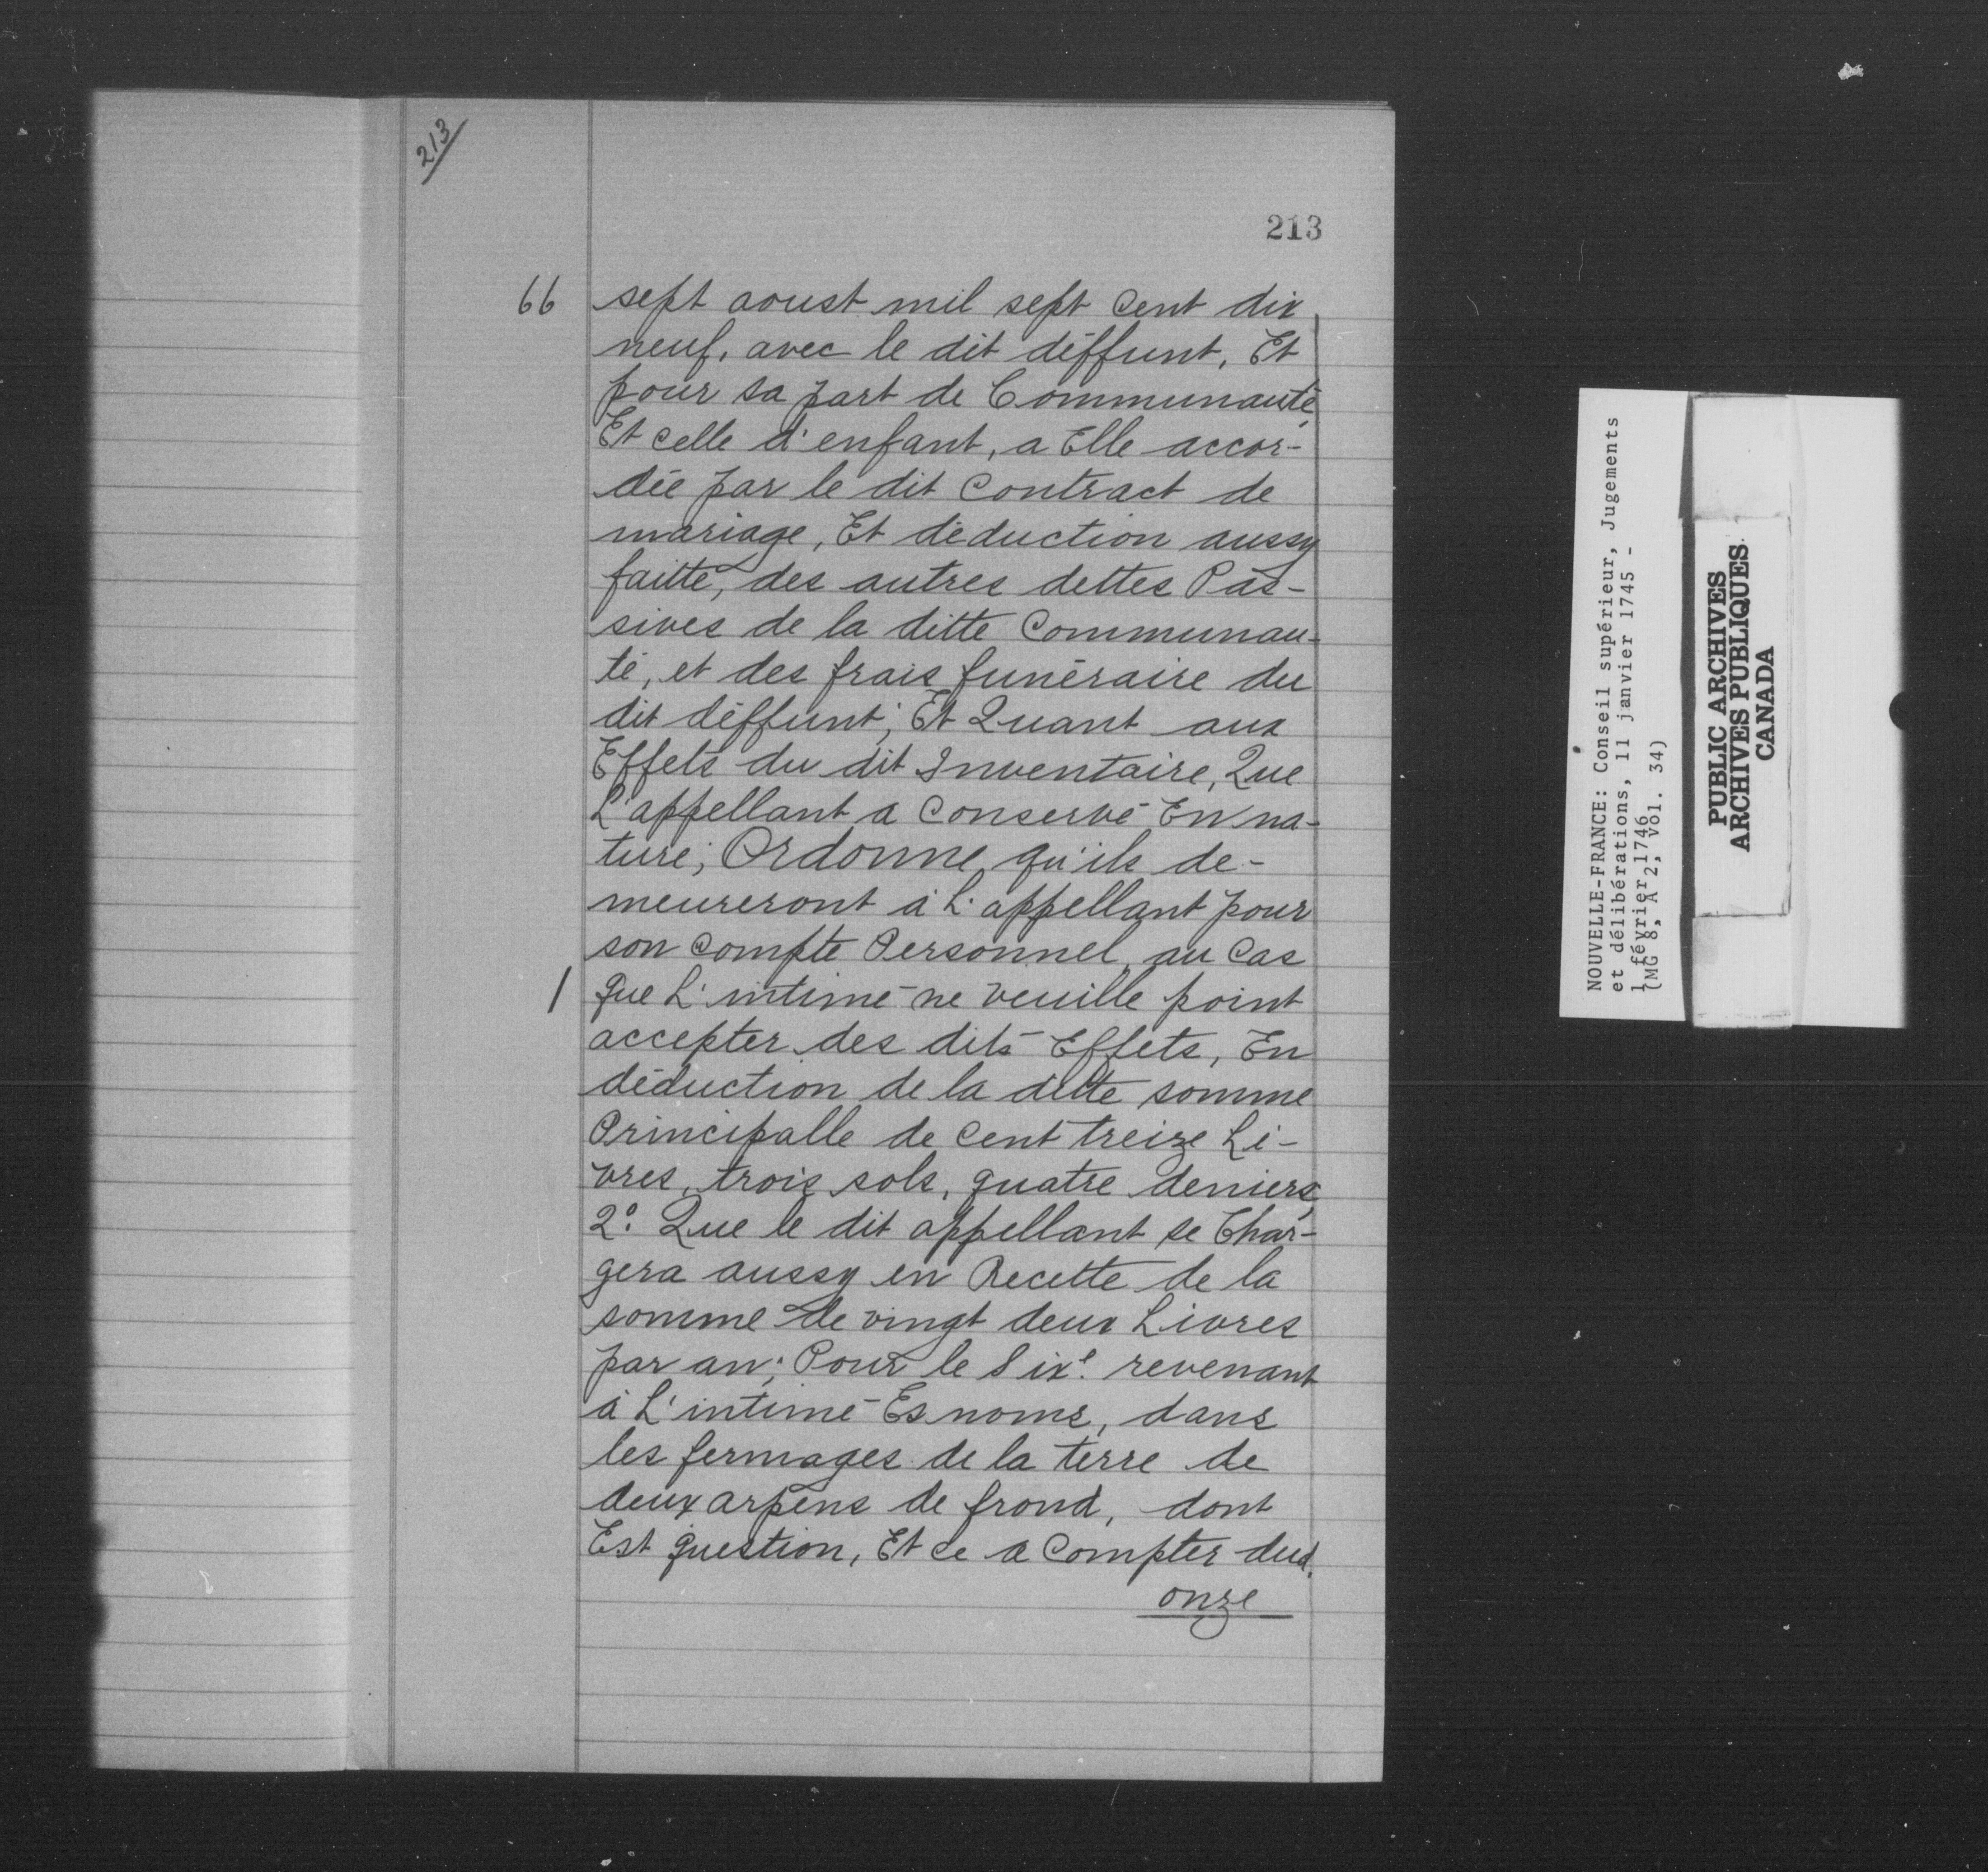 213
213
66
sept aoust mil sept Cent dix
neuf, avec le dit déffunt, Et
pour sa part de Communauté,
Et celle d'enfant, a Elle accor-
dée par le dit Contract de
mariage, Et déduction aussy
faitte, des autres dettes Pas-
sives de la ditte Communau-
té, et des frais funéraire du
dit déffunt; Et Quant aux
Effets du dit Inventaire, Que
L'appellant a Conservé En na-
ture; Ordonne, qu'ils de-
meureront à L'appellant pour
son Compte Personnel, au Cas
que L'intimé ne veuille point
accepter des dits Effets, En
déduction de la ditte somme
Principalle de Cent treize Li-
vres, trois sols, quatre deniers,
2º. Que le dit appellant se Char-
gera aussy en Recette de la
somme de vingt deux Livres
par an; Pour le Sixe. revenant
à L'intimé Es noms, dans
les fermages de la terre de
deux arpens de frond, dont
Est question, Et ce a Compter dud.
onze
NOUVELLE-FRANCE: Conseil supérieur, Jugements
et délibérations, 11 janvier 1745 -
1 février 1746
(MG 8, A 2, vol. 34)
PUBLIC ARCHIVES
ARCHIVES PUBLIQUES
CANADA